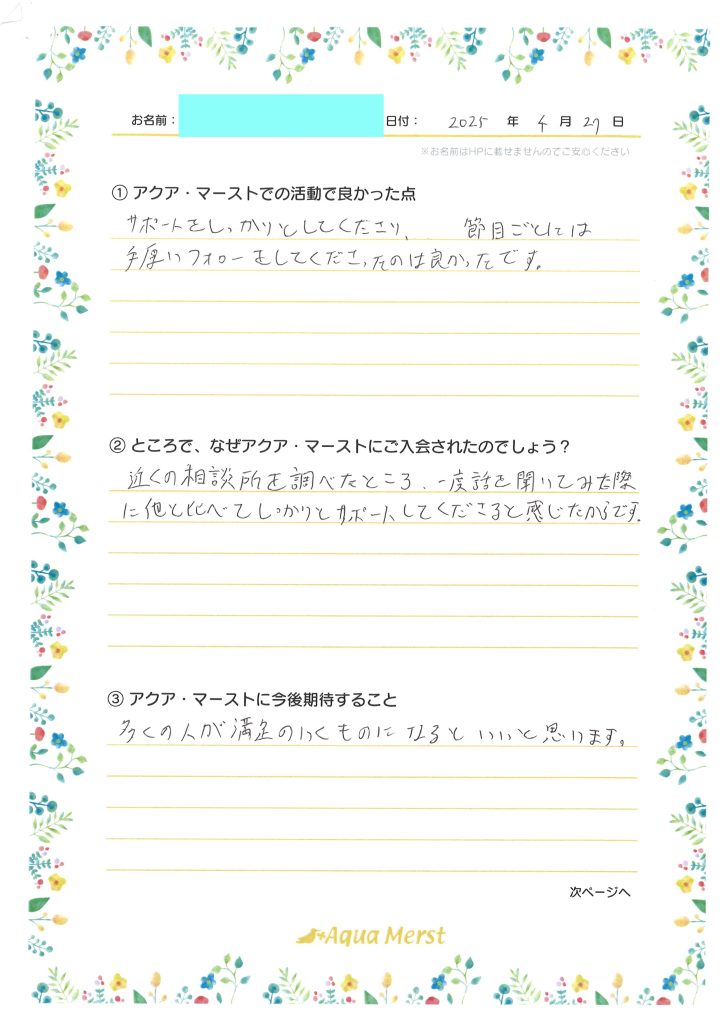 お名前： 日付： 2025 年 4 月 27 日
※お名前はHPに載せませんのでご安心ください
① アクア・マーストでの活動で良かった点
サポートをしっかりとしてくださり、 節目ごとには
手厚いフォローをしてくださったのは良かったです。
② ところで、なぜアクア・マーストにご入会されたのでしょう？
近くの相談所を調べたところ、一度話を聞いてみた際
に他と比べてしっかりとサポートしてくださると感じたからです。
③ アクア・マーストに今後期待すること
多くの人が満足のいくものになるといいと思います。
次ページへ
Aqua Merst